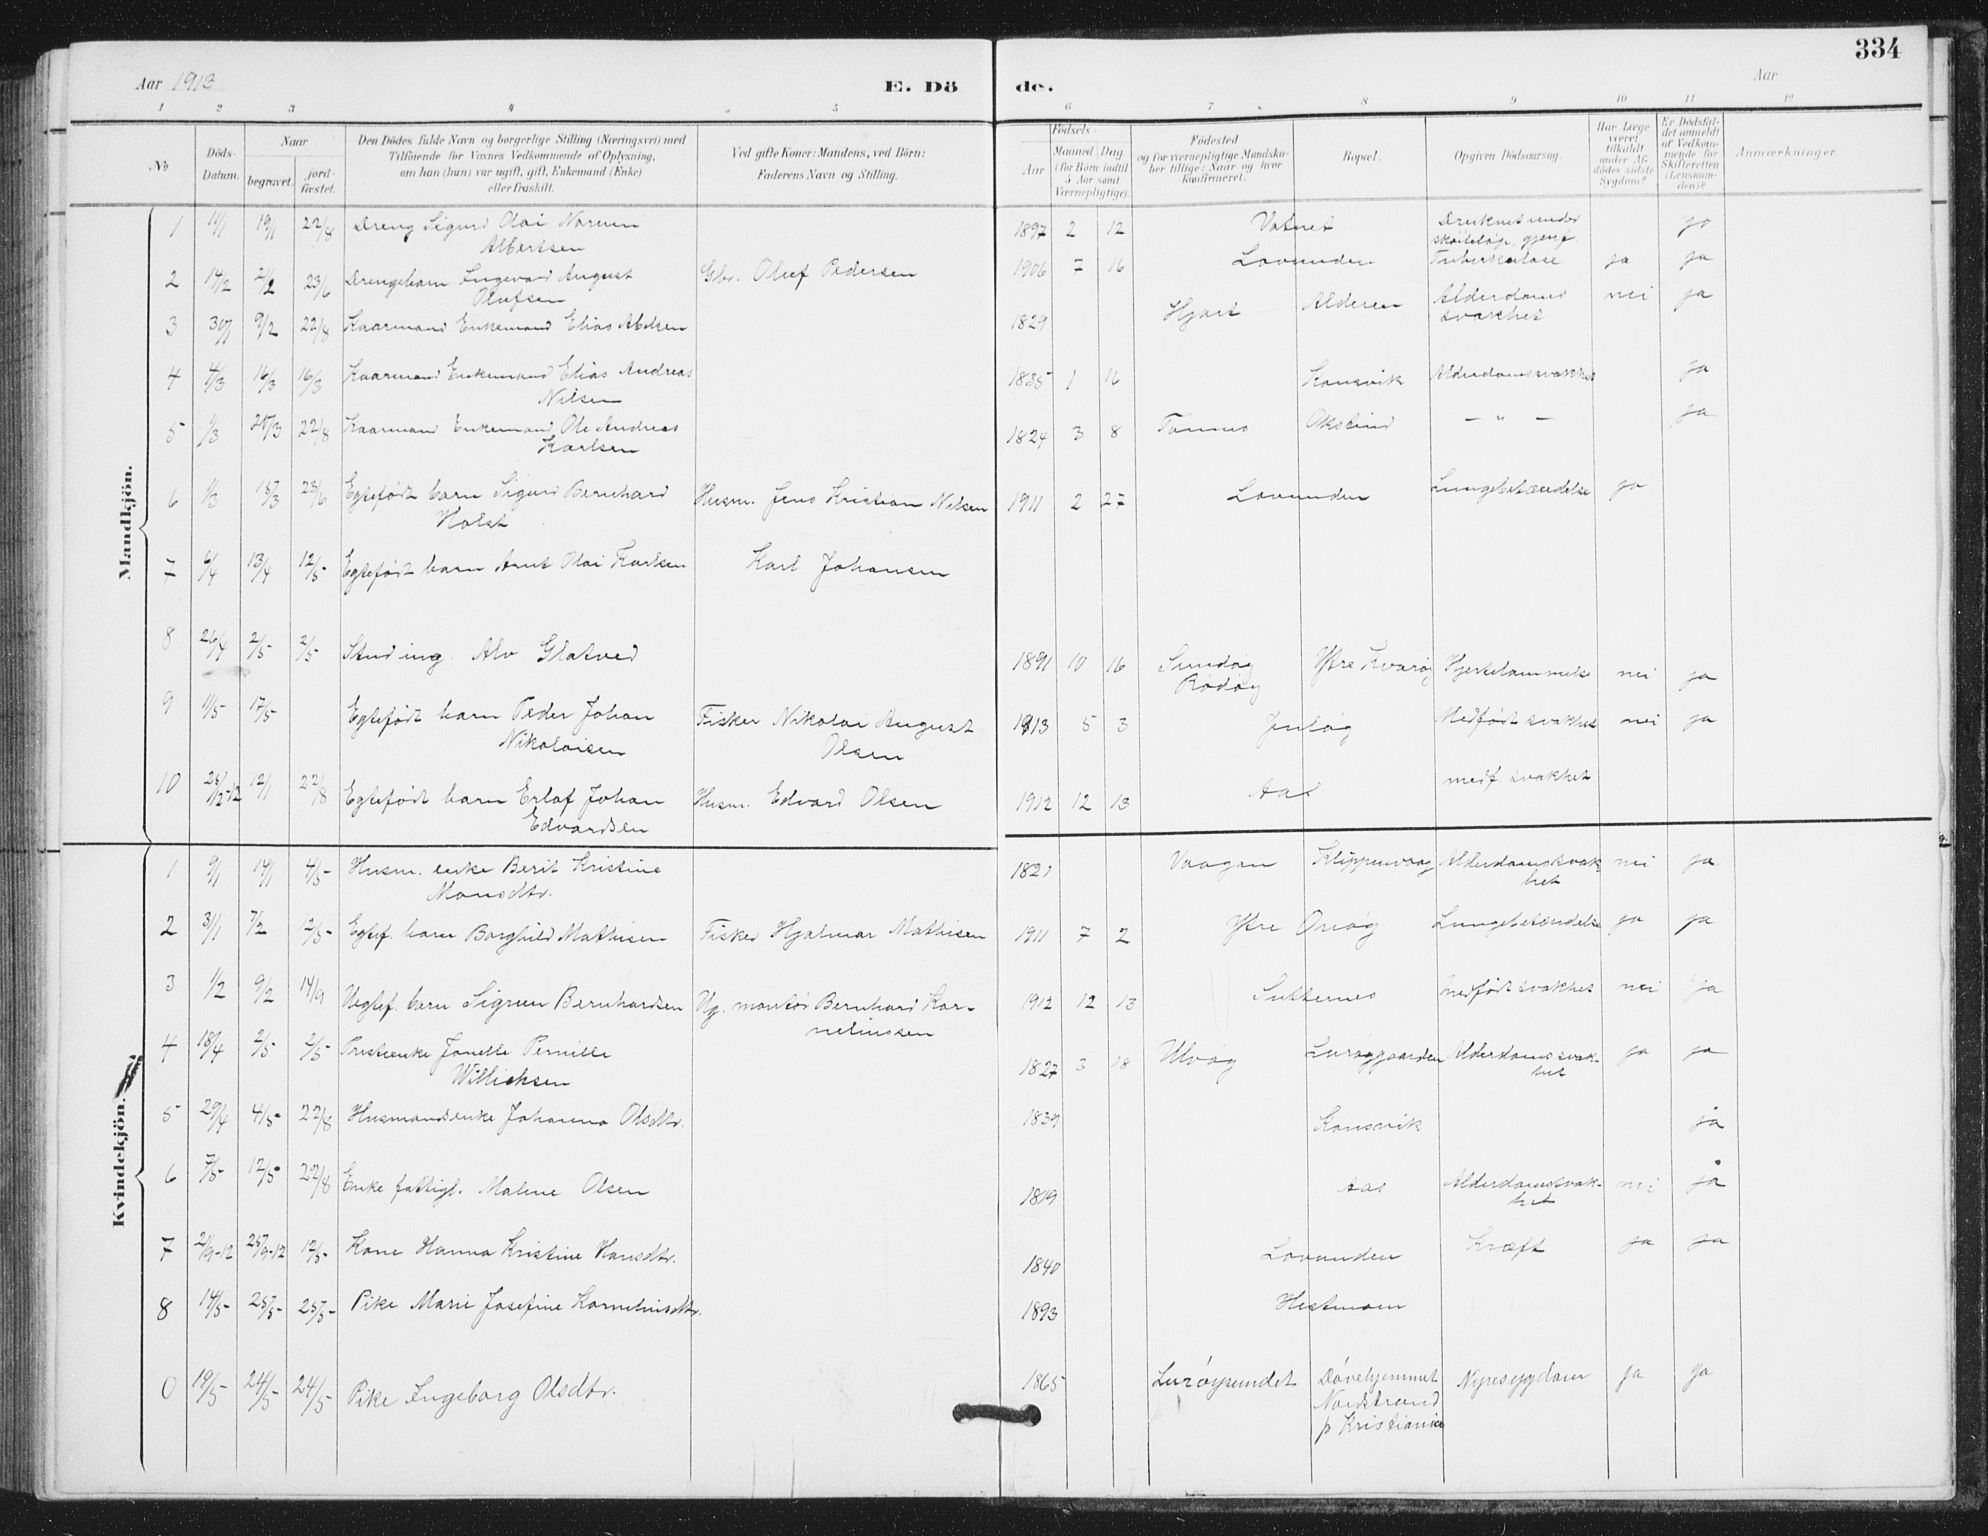 334
Aar 1913
E. Dö
de.
Aar
1 2 3 4 5 6 7 8 9 10 11 12
No.
Döds-Datum.
Naar
begravet.
jord-fæstet.
Den Dödes fulde Navn og borgerlige Stilling (Næringsvei) med
Tilföiende for Voxnes Vedkommende af Oplysning,
om han (hun) var ugift, gift, Enkemand (Enke)
eller fraskilt.
Ved gifte Koner: Mandens, ved Börn:
Faderens Navn og Stilling.
Födsels-
Aar
Maaned Dag
(for Börn indtil
5 Aar samt
Værnepligtige).
Födested
og for værnepligtige Mandska-
ber tillige: Naar og hvor
konfirmeret.
Bopæl.
Opgiven Dödsaarsag.
Har Læge
været
tilkaldt
under Af-
dödes sidste
Sygdom?
Er Dödsfal-
det anmeldt
af Vedkom-
mende for
Skifteretten
(Lensman-
den)?
Anmærkninger.
Mandkjön.
1 11/1 19/1 22/8 Dreng Sigurd Olai Normen 1897 2 12 Vatnet Druknet under ja
Albertsen skøiteløp, gjenf
2 14/2 2/2 23/6 Drengebarn Ingevard August Gbr. Oluf Pedersen 1906 7 16 Lovunden Tuberkulose ja ja
Olufsen
3 30/1 9/2 22/8 Kaarmand Enkemand Elias Abelsen 1829 Hjart Alderen Alderdoms nei ja
svakhet
4 4/3 16/3 16/3 Kaarmand Enkemand Elias Andreas 1835 1 16 Konsvik Alderdomssvakhet ja
Nilsen
5 1/3 25/3 22/8 Kaarmand Enkemand Ole Andreas 1824 3 8 Tonnes Okstind — " — ja
Karlsen
6 1/3 15/3 23/6 Egtefødt barn Sigurd Bernhard Husm. Jens Kristian Nilsen 1911 2 27 Lovunden Lungebetændelse ja
Holst
7 6/4 13/4 12/5 Egtefødt barn Arnt Olai Karlsen Karl Johansen
8 26/4 2/5 2/5 Stud ing. Alv Glatved 1891 10 16 Sundøy Ytre Kvarøy Hjertelammelse nei ja
Rødøy
9 11/5 17/5 Egtefødt barn Peder Johan Fisker Nikolai August 1913 5 3 Indøy Medfødt svakhet nei ja
Nikolaisen Olsen
10 28/12-12 12/1 22/8 Egtefødt barn Erlaf Johan Husm. Edvard Olsen 1912 12 13 Aas medf. svakhet
Edvardsen
Kvindekjön.
1 9/1 14/1 4/5- Husm. enke Berit Kristine 1821 Vaagan Klippenvaag Alderdomssvak nei ja
Monsdtr. het
2 3/1 7/2 12/5- Egtef. barn Borghild Mathisen Fisker Hjalmar Mathisen 1911 7 2 Ytre Onøy Lungebetændelse ja ja
3 1/2 9/2 14/9 Uegtef. barn Sigrun Bernhardsen Ug. montør Bernhard Kor- 1912 12 13 Sutternes Medfødt svakhet nei ja
neliussen
4 18/4 2/5 2/5 Prestenke Jonelle Pernille 1827 3 18 Ulvøy Lurøygaarden Alderdomssvak- ja ja
Willichsen het
5 29/4 4/5- 22/8 Husmandsenke Johanna Olsdtr. 1839 Konsvik ja
6 7/5- 12/5- 22/8 Enke fattigl. Malene Olsen 1819 Aas Alderdomssvak- nei ja
het
7 21/9-12 25/9-12 12/5- Kone Hanna Kristine Hansdtr. 1840 Lovunden Kræft ja ja
8 14/5- 25/5- 25/5- Pike Marie Josefine Korneliusdtr. 1893 Hestmoen
0 19/5- 24/5 24/5 Pike Ingeborg Olsdtr. 1865 Lurøysundet Døvehjemmet Nyresygdom ja ja
Nordstrand
p Kristiania